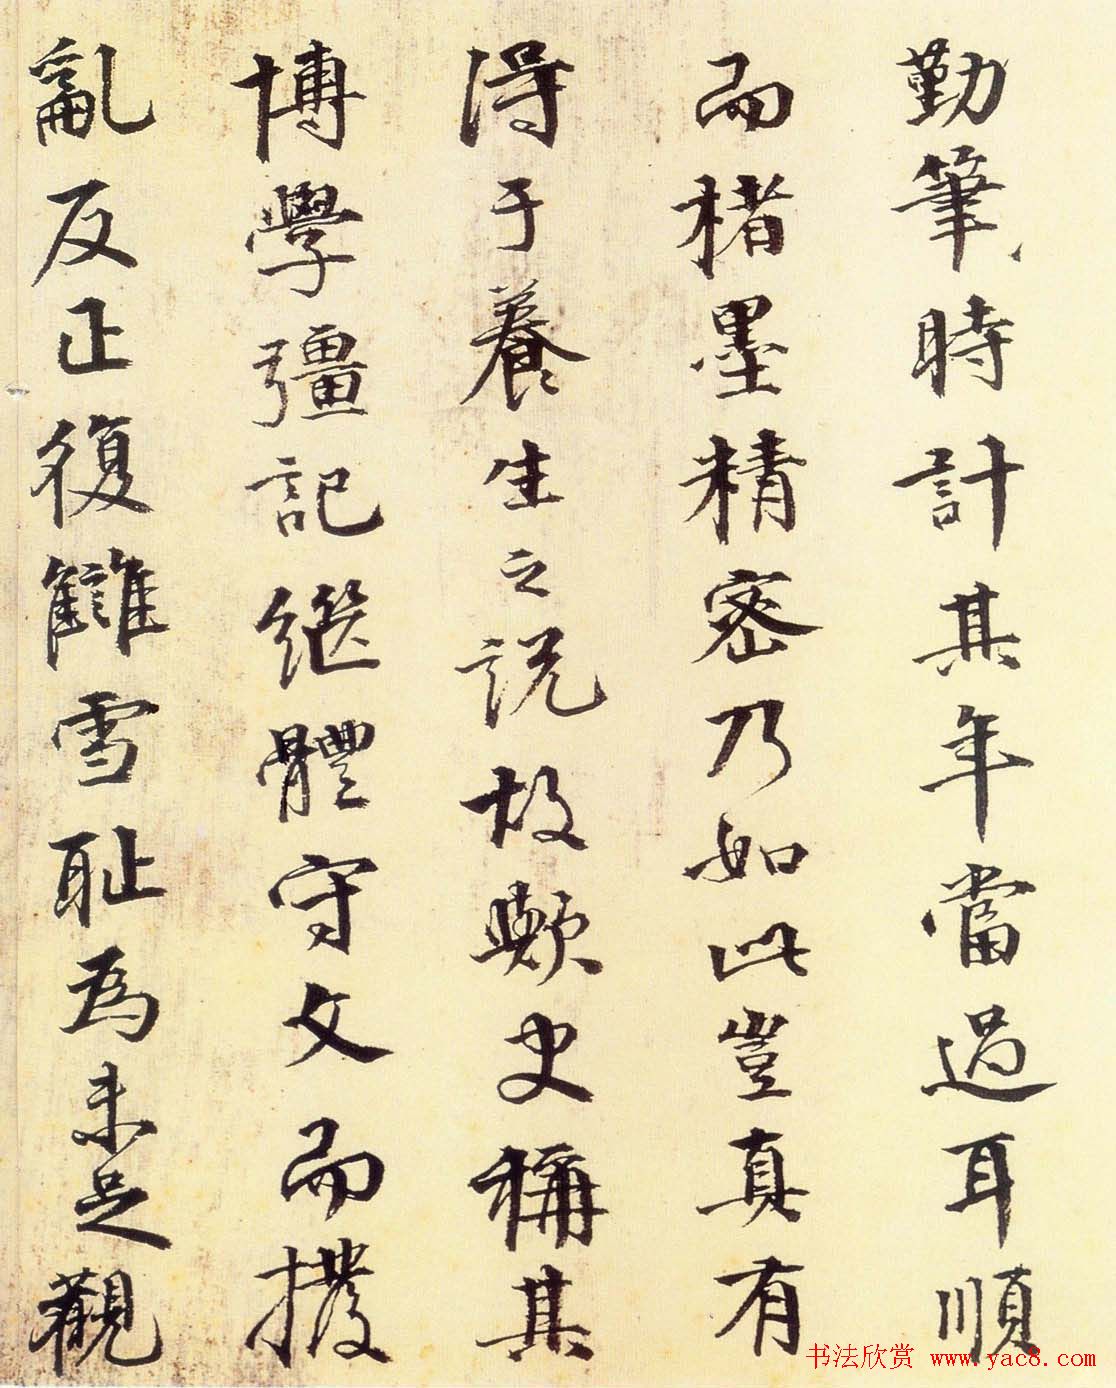 勤筆時計其年當過耳順
而楮墨精密乃如此豈真有
得于養生之說故歟史稱其
博學彊記繼體守文而撥
亂反正復讎雪耻為未足觀
书法欣赏 www.yac8.com